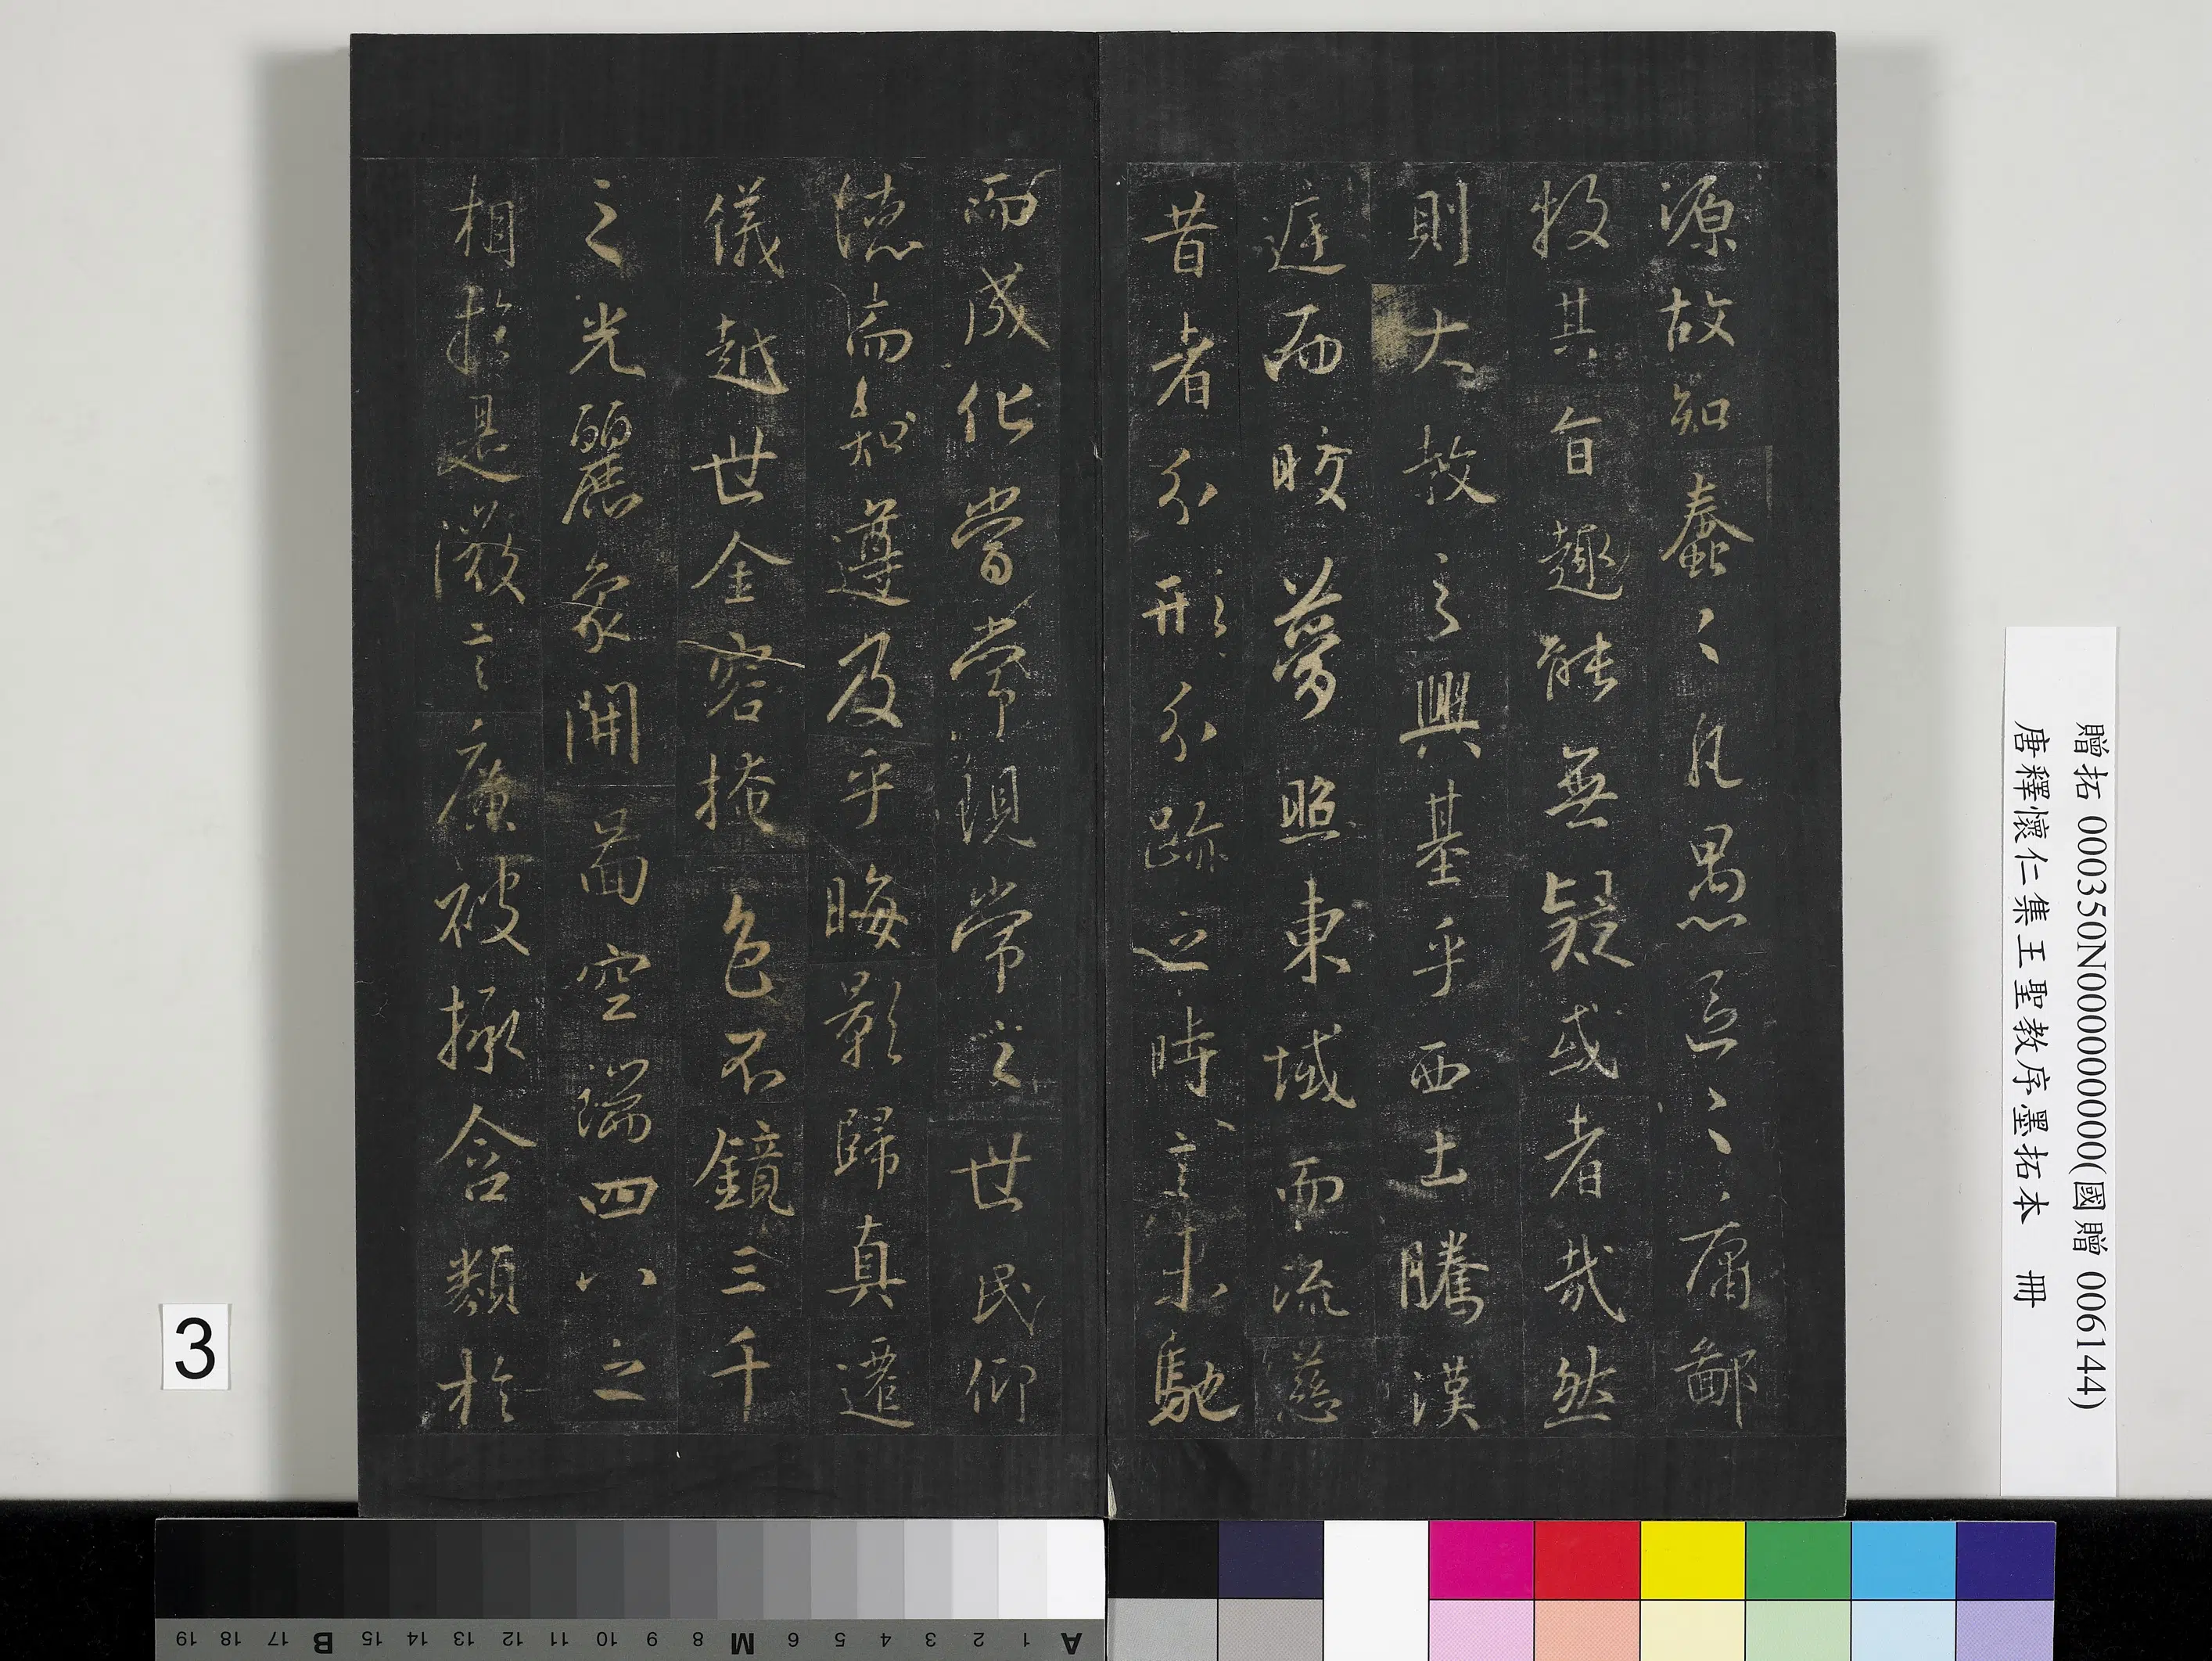 源故知蠢々凡愚區々庸鄙
投其旨趣能無疑或者哉然
則大教之興基乎西土騰漢
遑而皎夢照東域而流慈
昔者分形分跡之時言未馳
而成化當常現常之世民仰
德而知遵及乎晦影歸真遷
儀越世金容掩色不鏡三千
之光麗象開圖空端四八之
相於是微言廣被拯含類於
贈拓 000350N000000000(國贈 006144)
唐釋懷仁集王聖教序墨拓本 冊
3
A 1 2 3 4 5 6 M 8 9 10 11 12 13 14 15 B 17 18 19